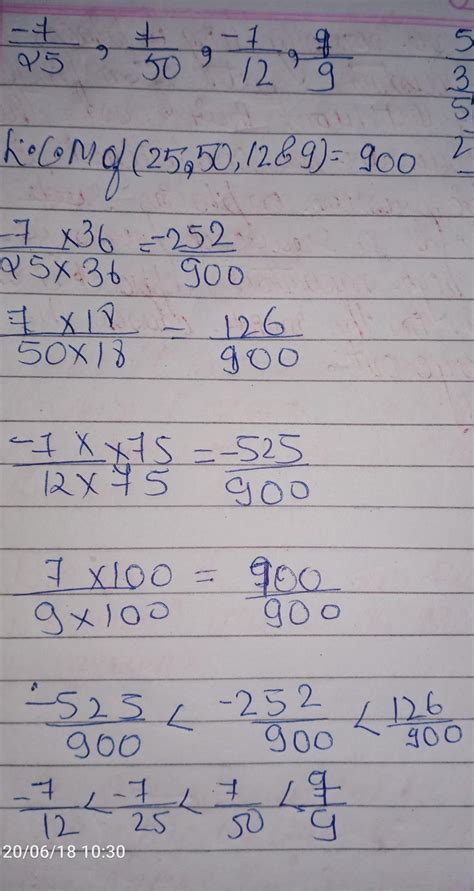 -7/25, 7/50, -7/12, 7/9
5
3
5
2
L.C.M of (25,50,12&9)= 900
-7 x36/25x36 = -252/900
7 x18/50x18 = 126/900
-7 x x75/12x75 = -525/900
7 x100/9x100 = 900/900
-525/900 < -252/900 < 126/900
-7/12 < -7/25 < 7/50 < 7/9
20/06/18 10:30